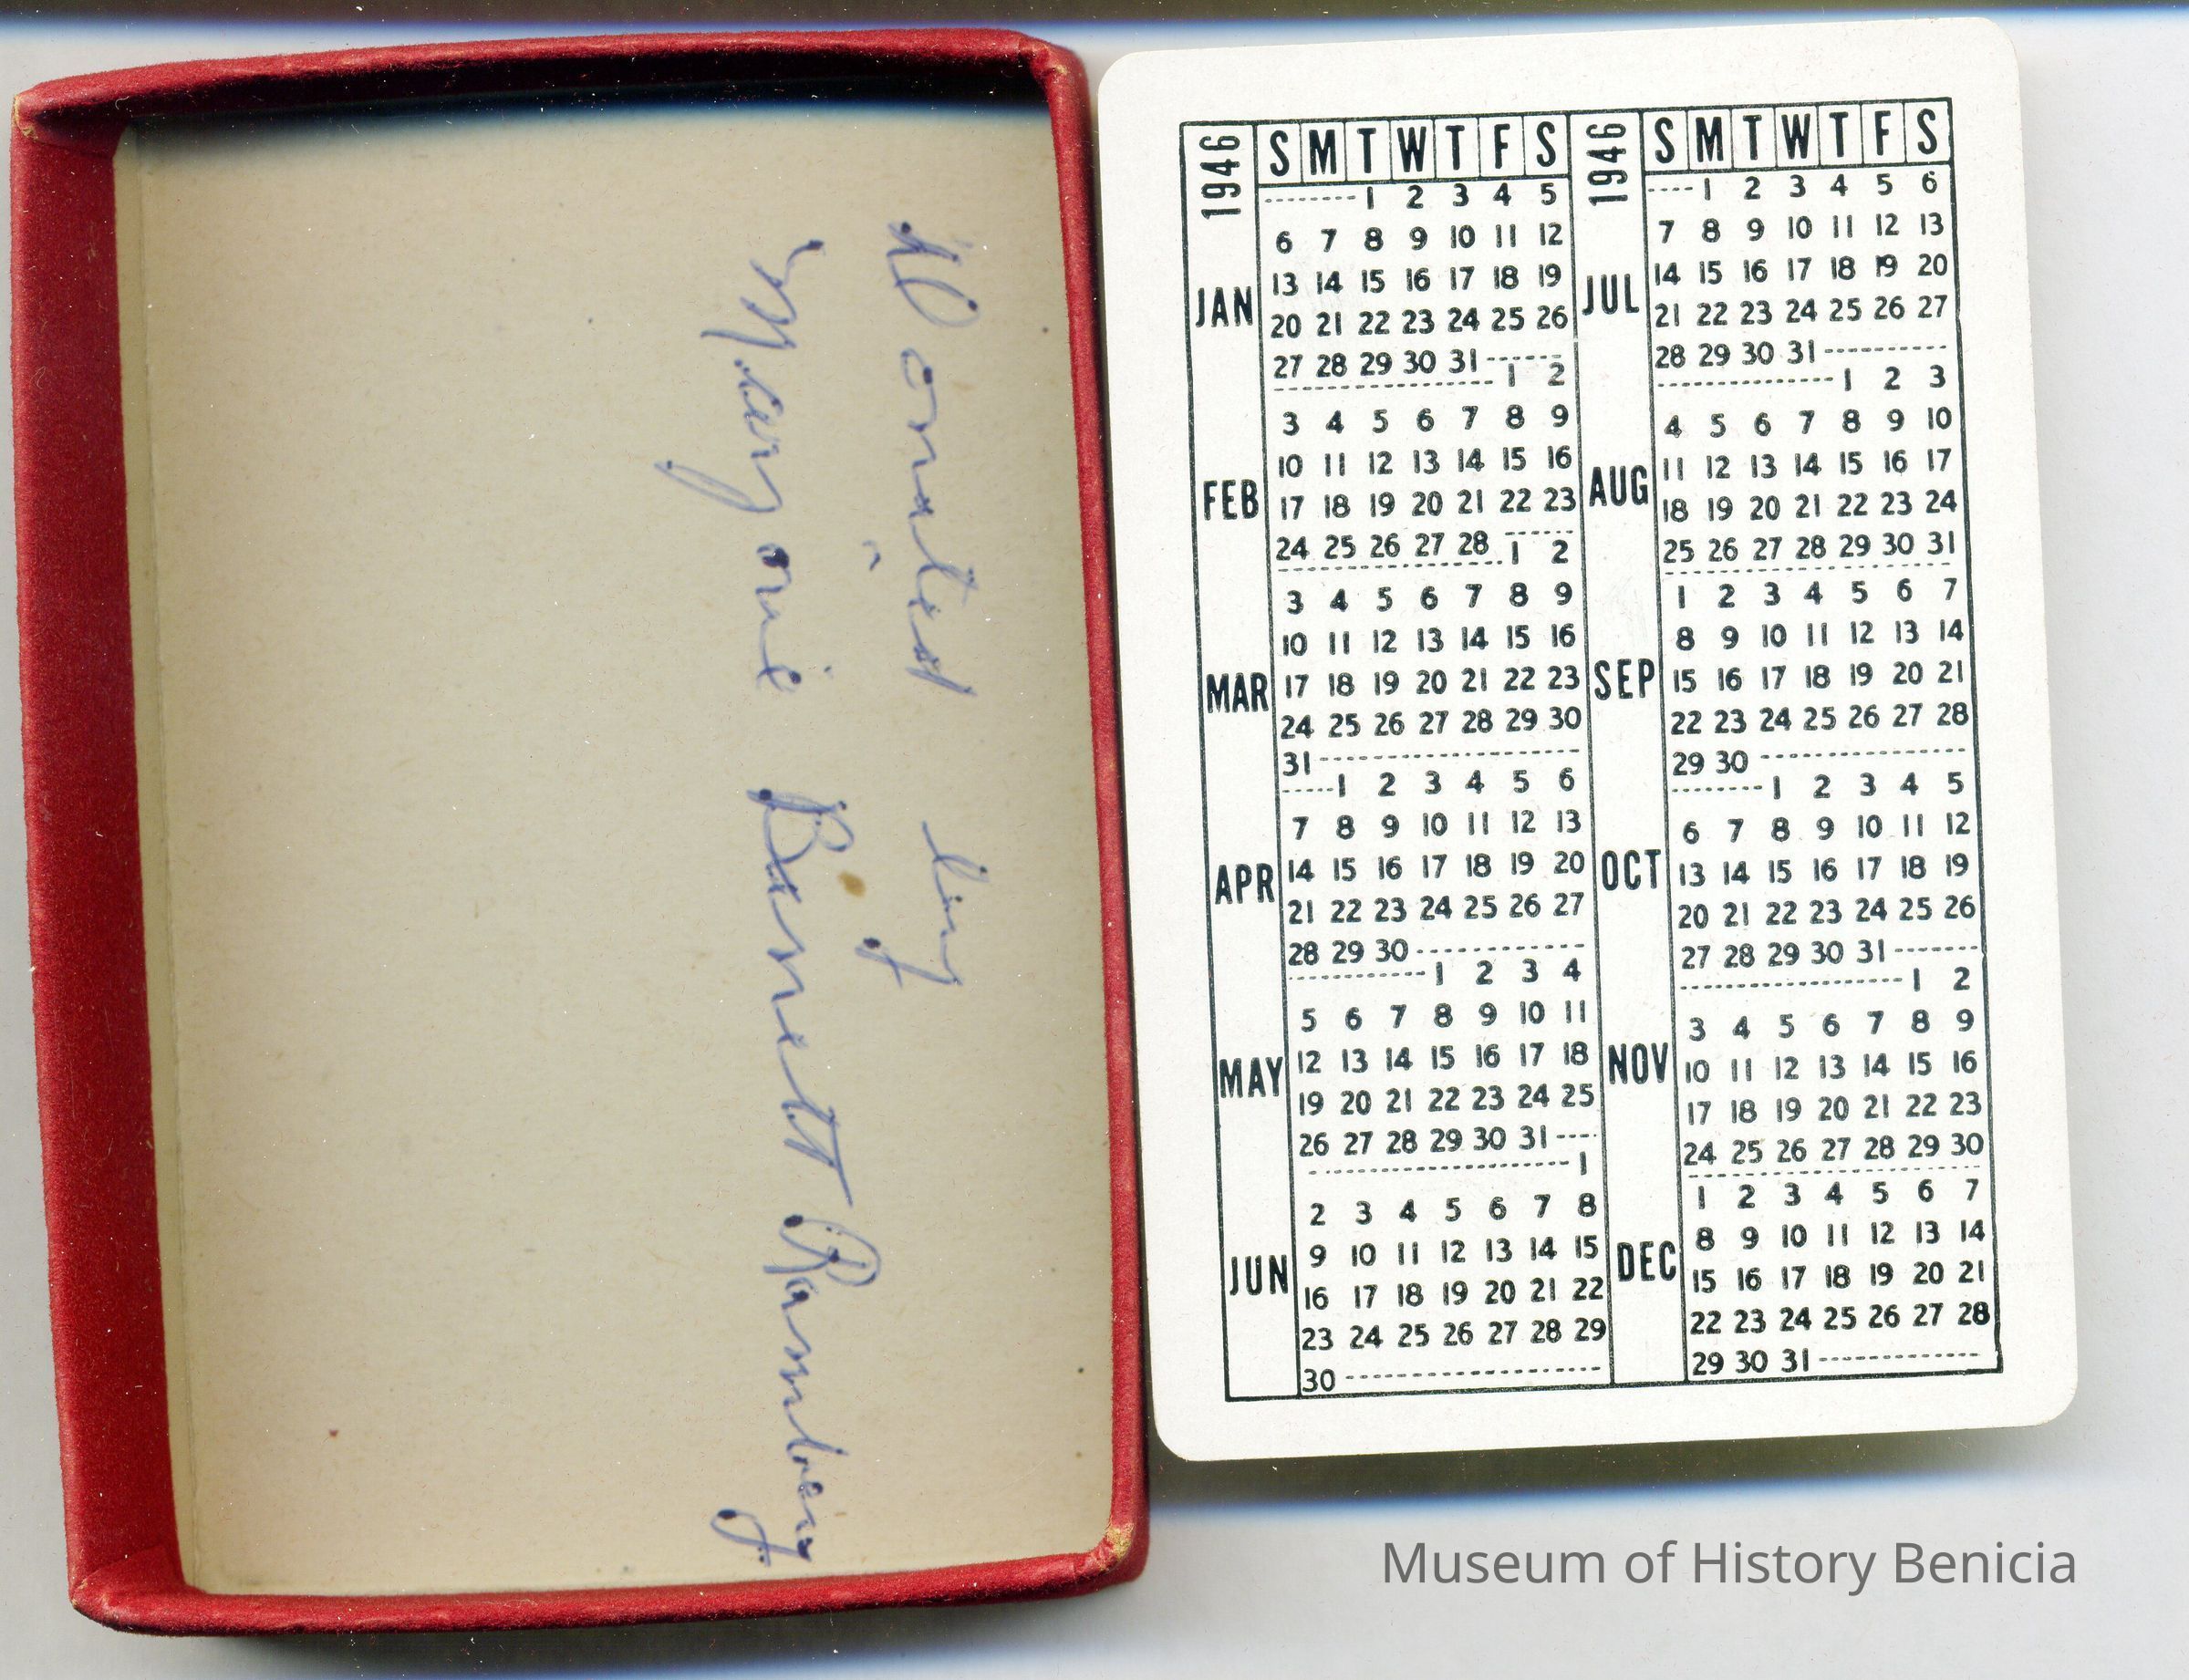 Donated by
Marjorie Barnett Ramberg
1946 S M T W T F S
JAN
1 2 3 4 5
6 7 8 9 10 11 12
13 14 15 16 17 18 19
20 21 22 23 24 25 26
27 28 29 30 31
FEB
1 2
3 4 5 6 7 8 9
10 11 12 13 14 15 16
17 18 19 20 21 22 23
24 25 26 27 28
MAR
1 2
3 4 5 6 7 8 9
10 11 12 13 14 15 16
17 18 19 20 21 22 23
24 25 26 27 28 29 30
31
APR
1 2 3 4 5 6
7 8 9 10 11 12 13
14 15 16 17 18 19 20
21 22 23 24 25 26 27
28 29 30
MAY
1 2 3 4
5 6 7 8 9 10 11
12 13 14 15 16 17 18
19 20 21 22 23 24 25
26 27 28 29 30 31
JUN
1
2 3 4 5 6 7 8
9 10 11 12 13 14 15
16 17 18 19 20 21 22
23 24 25 26 27 28 29
30
1946 S M T W T F S
JUL
1 2 3 4 5 6
7 8 9 10 11 12 13
14 15 16 17 18 19 20
21 22 23 24 25 26 27
28 29 30 31
AUG
1 2 3
4 5 6 7 8 9 10
11 12 13 14 15 16 17
18 19 20 21 22 23 24
25 26 27 28 29 30 31
SEP
1 2 3 4 5 6 7
8 9 10 11 12 13 14
15 16 17 18 19 20 21
22 23 24 25 26 27 28
29 30
OCT
1 2 3 4 5
6 7 8 9 10 11 12
13 14 15 16 17 18 19
20 21 22 23 24 25 26
27 28 29 30 31
NOV
1 2
3 4 5 6 7 8 9
10 11 12 13 14 15 16
17 18 19 20 21 22 23
24 25 26 27 28 29 30
DEC
1 2 3 4 5 6 7
8 9 10 11 12 13 14
15 16 17 18 19 20 21
22 23 24 25 26 27 28
29 30 31
Museum of History Benicia